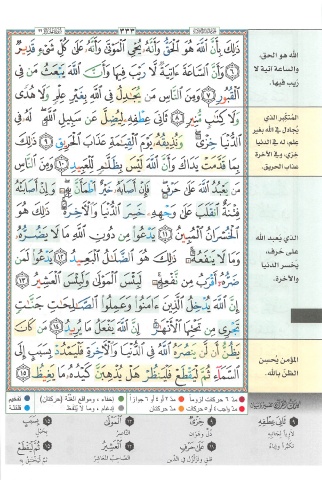 ٣٣٣
ذَٰلِكَ بِأَنَّ ٱللَّهَ هُوَ ٱلْحَقُّ وَأَنَّهُۥ يُحْىِ ٱلْمَوْتَىٰ وَأَنَّهُۥ عَلَىٰ كُلِّ شَىْءٍ قَدِيرٌ
٦ وَأَنَّ ٱلسَّاعَةَ ءَاتِيَةٌ لَّا رَيْبَ فِيهَا وَأَنَّ ٱللَّهَ يَبْعَثُ مَن فِى
ٱلْقُبُورِ ٧ وَمِنَ ٱلنَّاسِ مَن يُجَٰدِلُ فِى ٱللَّهِ بِغَيْرِ عِلْمٍ وَلَا هُدًى
وَلَا كِتَٰبٍ مُّنِيرٍ ٨ ثَانِىَ عِطْفِهِۦ لِيُضِلَّ عَن سَبِيلِ ٱللَّهِ لَهُۥ فِى
ٱلدُّنْيَا خِزْىٌ وَنُذِيقُهُۥ يَوْمَ ٱلْقِيَٰمَةِ عَذَابَ ٱلْحَرِيقِ ٩ ذَٰلِكَ
بِمَا قَدَّمَتْ يَدَاكَ وَأَنَّ ٱللَّهَ لَيْسَ بِظَلَّٰمٍ لِّلْعَبِيدِ ١٠ وَمِنَ ٱلنَّاسِ
مَن يَعْبُدُ ٱللَّهَ عَلَىٰ حَرْفٍ فَإِنْ أَصَابَهُۥ خَيْرٌ ٱطْمَأَنَّ بِهِۦ وَإِنْ أَصَابَتْهُ
فِتْنَةٌ ٱنقَلَبَ عَلَىٰ وَجْهِهِۦ خَسِرَ ٱلدُّنْيَا وَٱلْءَاخِرَةَ ذَٰلِكَ هُوَ
ٱلْخُسْرَانُ ٱلْمُبِينُ ١١ يَدْعُوا۟ مِن دُونِ ٱللَّهِ مَا لَا يَضُرُّهُۥ
وَمَا لَا يَنفَعُهُۥ ذَٰلِكَ هُوَ ٱلضَّلَٰلُ ٱلْبَعِيدُ ١٢ يَدْعُوا۟ لَمَن
ضَرُّهُۥٓ أَقْرَبُ مِن نَّفْعِهِۦ لَبِئْسَ ٱلْمَوْلَىٰ وَلَبِئْسَ ٱلْعَشِيرُ ١٣
إِنَّ ٱللَّهَ يُدْخِلُ ٱلَّذِينَ ءَامَنُوا۟ وَعَمِلُوا۟ ٱلصَّٰلِحَٰتِ جَنَّٰتٍ
تَجْرِى مِن تَحْتِهَا ٱلْأَنْهَٰرُ إِنَّ ٱللَّهَ يَفْعَلُ مَا يُرِيدُ ١٤ مَن كَانَ
يَظُنُّ أَن لَّن يَنصُرَهُ ٱللَّهُ فِى ٱلدُّنْيَا وَٱلْءَاخِرَةِ فَلْيَمْدُدْ بِسَبَبٍ إِلَى
ٱلسَّمَآءِ ثُمَّ لْيَقْطَعْ فَلْيَنظُرْ هَلْ يُذْهِبَنَّ كَيْدُهُۥ مَا يَغِيظُ ١٥
الله هو الحق،
والساعة آتية لا
ريب فيها.
المتكبر الذي
يُجادل في الله بغير
علم، له في الدنيا
خزي، وفي الآخرة
عذاب الحريق.
الذي يعبد الله
على حرف،
يخسر الدنيا
والآخرة.
المؤمن يُحسن
الظنّ بالله.
مدّ ٦ حركات لزوماً
مدّ ٢ أو ٤ أو ٦ جوازاً
إخفاء، ومواقع الغنّة (حركتان)
تفخيم
مدّ واجب ٤ أو ٥ حركات
مدّ حركتان
إدغام، وما لا يُلفظ
قلقلة
ثَانِىَ عِطْفِهِ
خِزْىٌ
ٱلْمَوْلَىٰ
النّاصر
بِسَبَبٍ
بحبل
ٱلْعَشِيرُ
الصّاحب المعاشر
ثُمَّ لْيَقْطَعْ